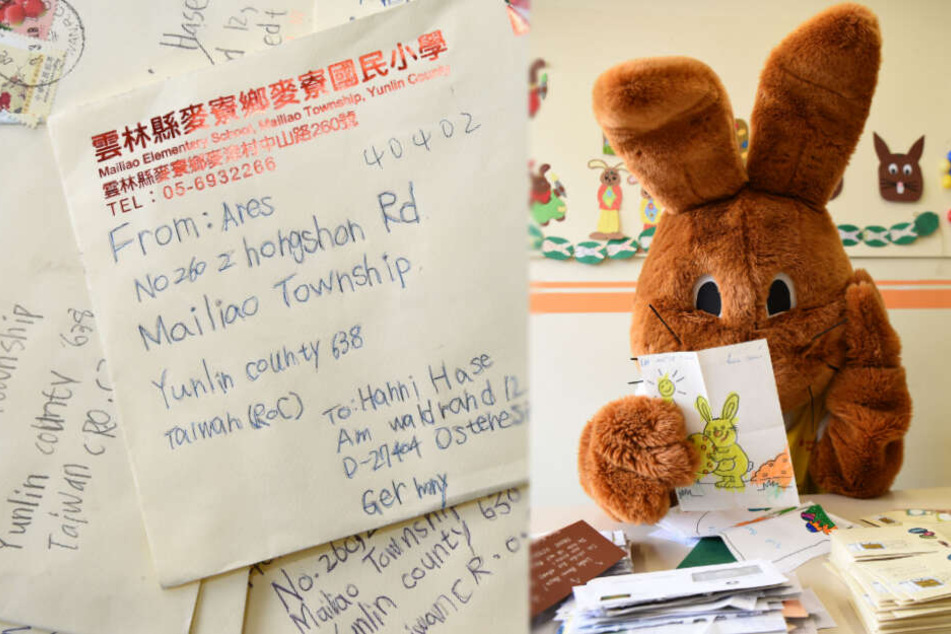 雲林縣麥寮鄉麥寮國民小學
Mailiao Elementary School, Mailiao Township, Yunlin County
雲林縣麥寮鄉麥豐村中山路260號
TEL：05-6932266
40402
From: Ares
No 260 2 hongshan Rd.
Mailiao Township.
Yunlin county 638
Taiwan (RoC)
To: Hanni Hase
Am waldrand 12
D-27404 Ostere
Germany
Hase
Township
Yunlin county 638
Taiwan CRO.C
No. 260
Mailiao Township
Yunlin county 630